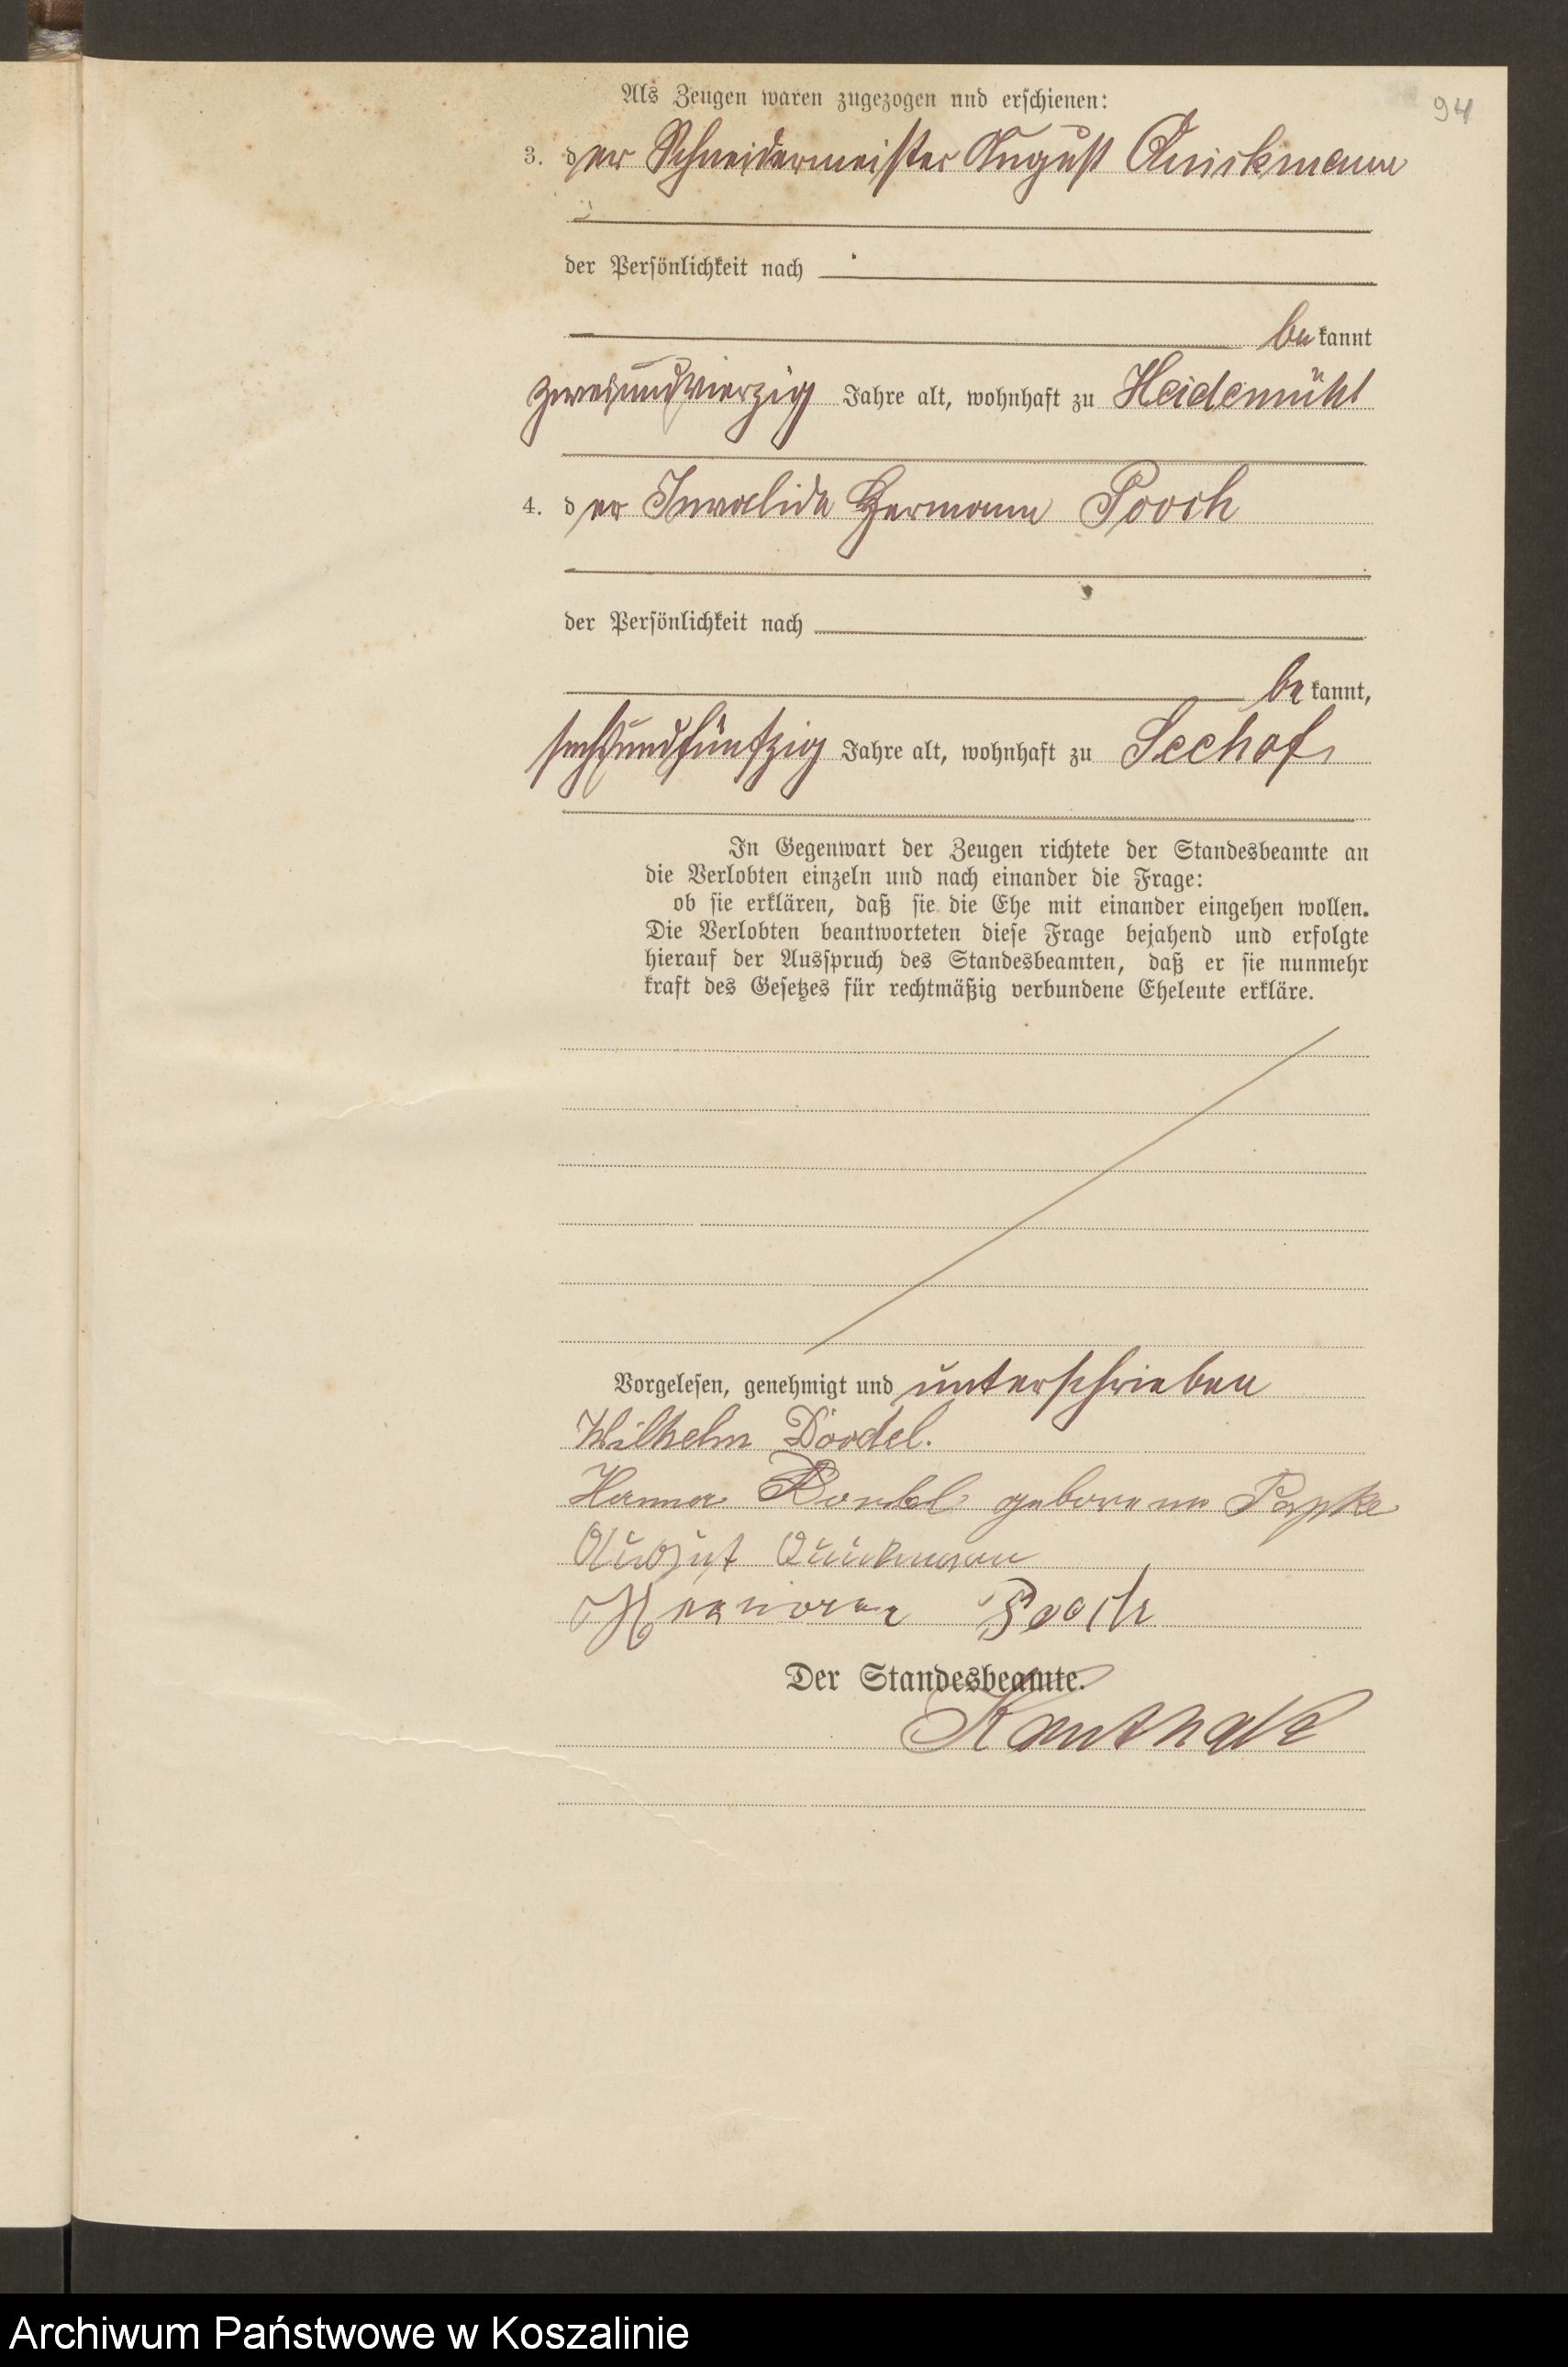 94
Als Zeugen waren zugezogen und erschienen:
3. der Schneidermeister August Quickmann
der Persönlichkeit nach
bekannt
zweiundvierzig Jahre alt, wohnhaft zu Heidemühl
4. der Invalide Hermann Pooch
der Persönlichkeit nach
bekannt,
sechsundfünfzig Jahre alt, wohnhaft zu Seehof
In Gegenwart der Zeugen richtete der Standesbeamte an
die Verlobten einzeln und nach einander die Frage:
ob sie erklären, daß sie die Ehe mit einander eingehen wollen.
Die Verlobten beantworteten diese Frage bejahend und erfolgte
hierauf der Ausspruch des Standesbeamten, daß er sie nunmehr
kraft des Gesetzes für rechtmäßig verbundene Eheleute erkläre.
Vorgelesen, genehmigt und unterschrieben
Wilhelm
Hanna geborene Papke
August Quickmann
Hermann Pooch
Der Standesbeamte.
Archiwum Państwowe w Koszalinie